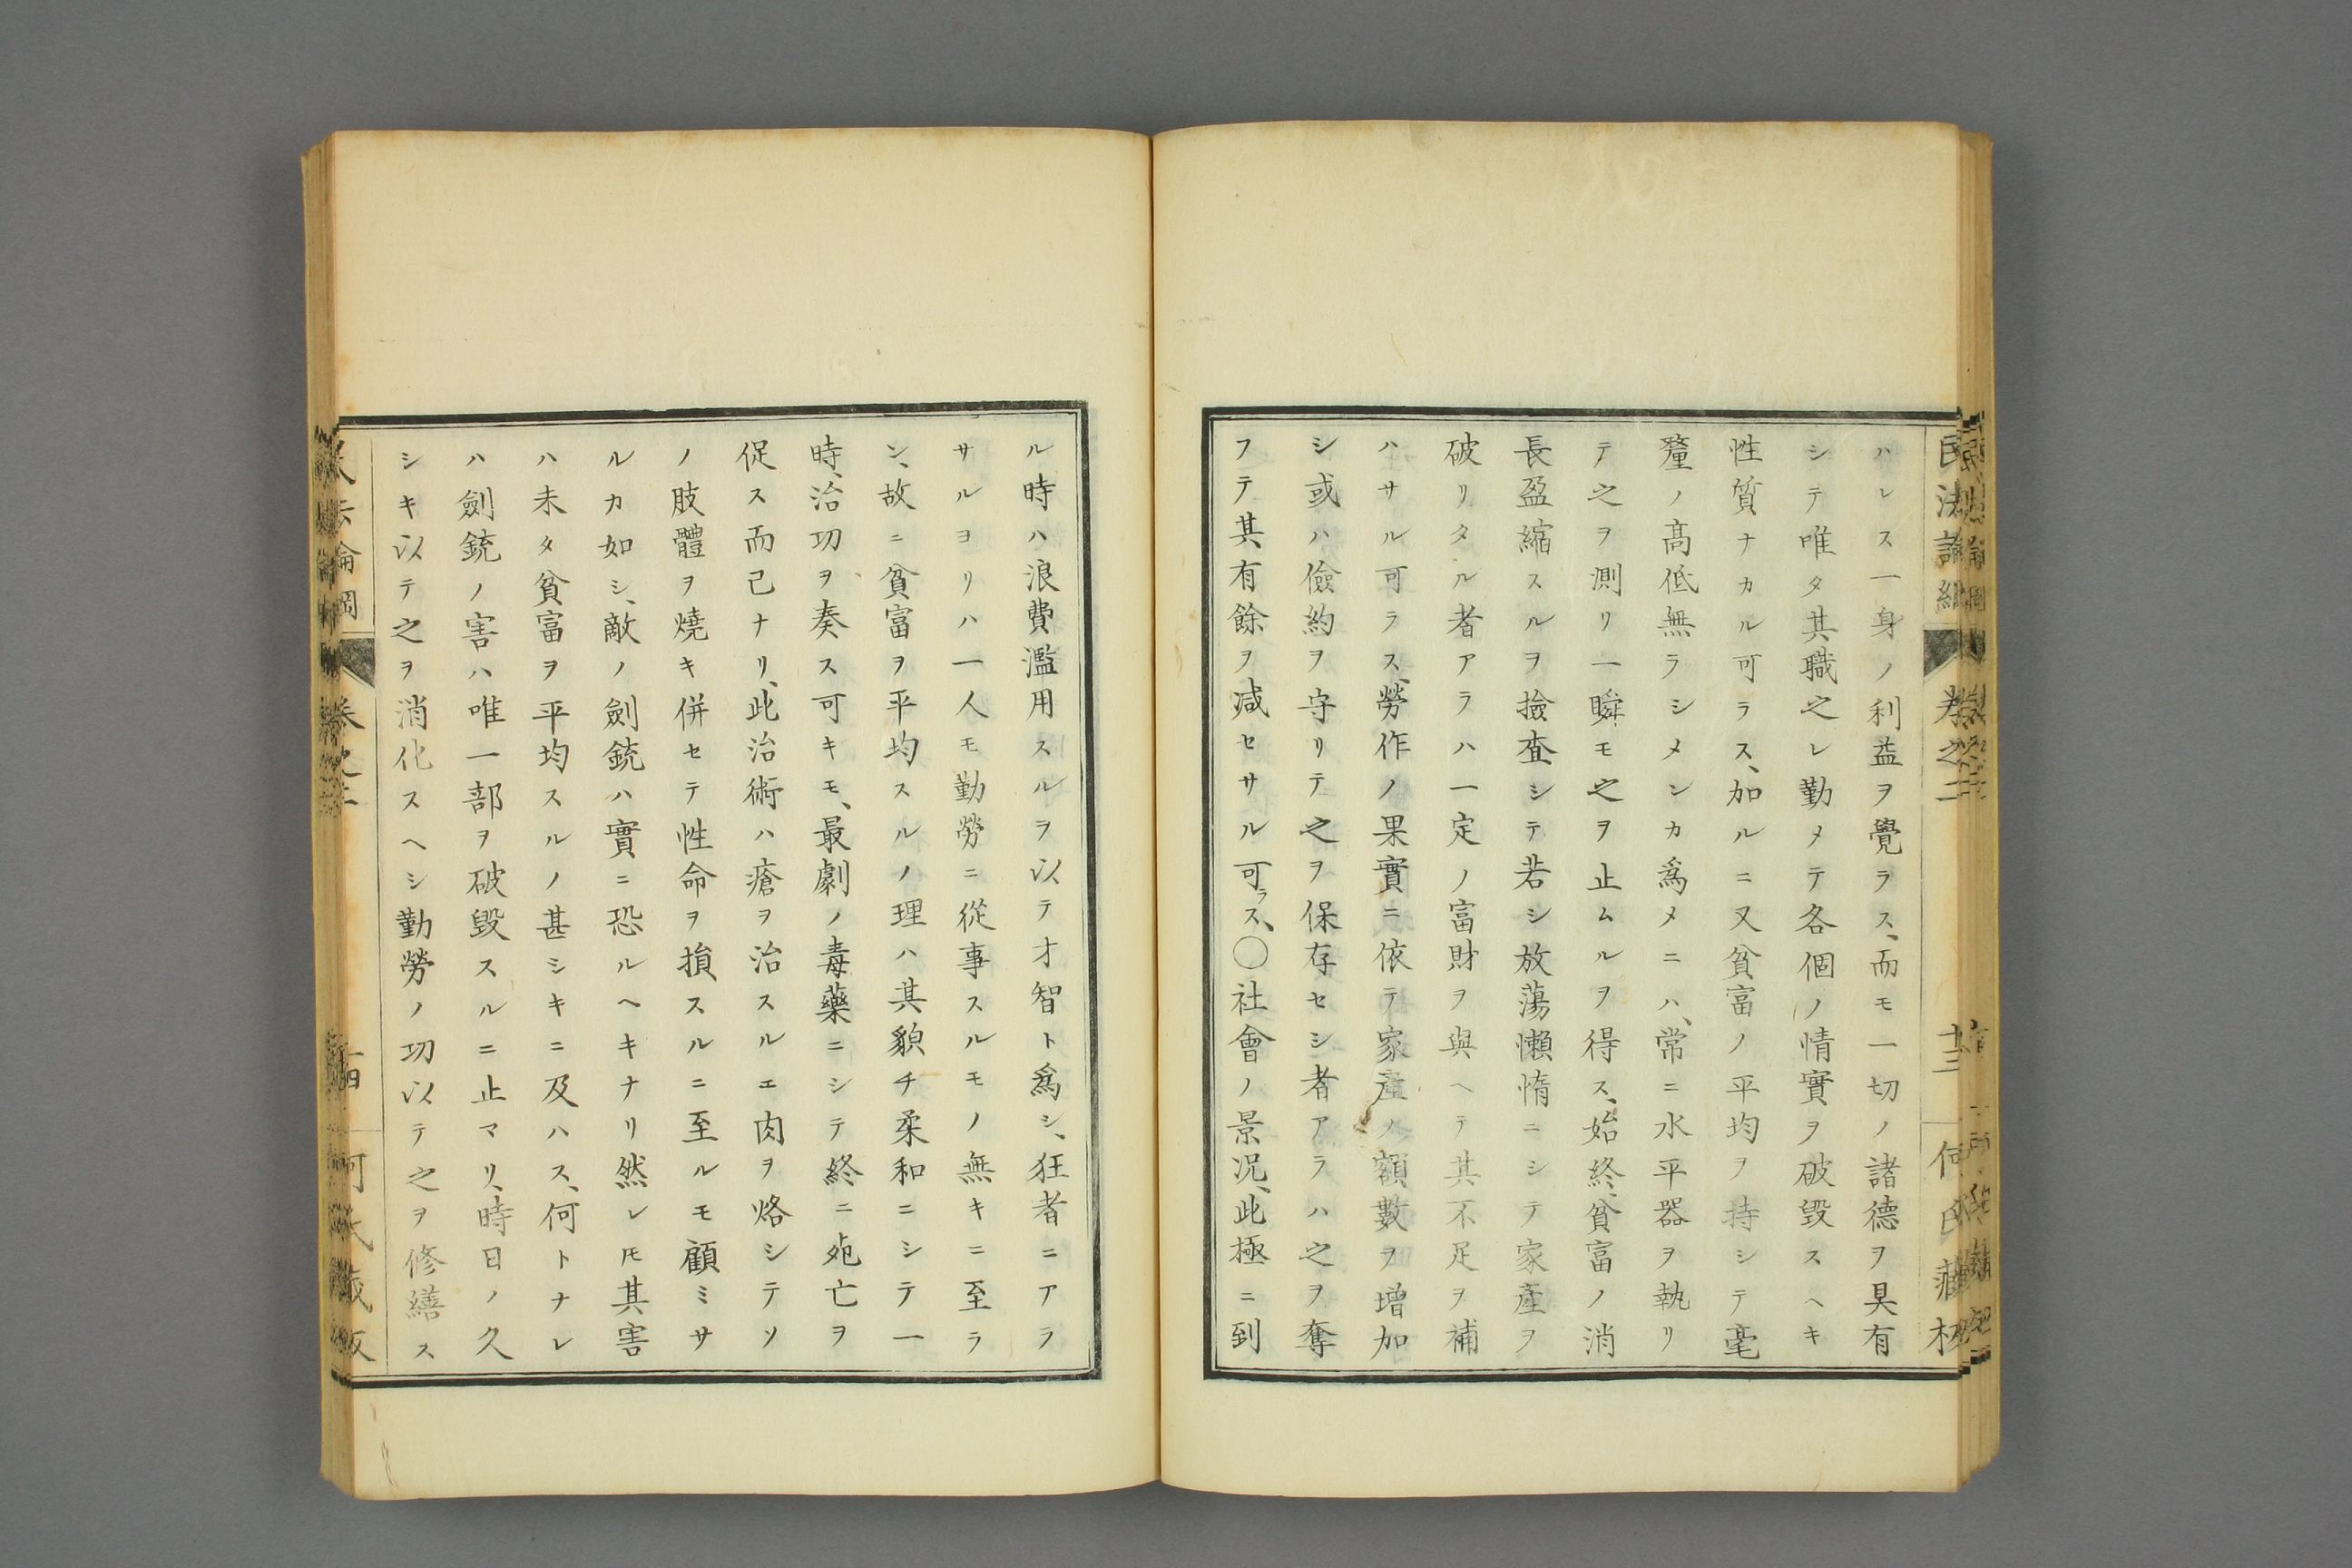 民法論綱
卷之二
十三
何氏藏板
ハレス一身ノ利益ヲ覺ラス、而モ一切ノ諸德ヲ具有
シテ唯タ其職之レ勤メテ各個ノ情實ヲ破毀スヘキ
性質ナカル可ラス、加ルニ又貧富ノ平均ヲ持シテ毫
釐ノ髙低無ラシメンカ爲メニハ、常ニ水平器ヲ執リ
テ之ヲ測リ一瞬モ之ヲ止ムルヲ得ス、始終貧富ノ消
長盈縮スルヲ撿査シテ若シ放蕩懶惰ニシテ家產ヲ
破リタル者アラハ一定ノ富財ヲ與ヘテ其不足ヲ補
ハサル可ラス、勞作ノ果實ニ依テ家產ノ額數ヲ增加
シ或ハ儉約ヲ守リテ之ヲ保存セシ者アラハ之ヲ奪
フテ其有餘ヲ減セサル可ラス、〇社會ノ景況、此極ニ到
ル時ハ浪費濫用スルヲ以テオ智ト爲シ、狂者ニアラ
サルヨリハ一人モ勤勞ニ從事スルモノ無キニ至ラ
ン、故ニ貧富ヲ平均スルノ理ハ其貌チ柔和ニシテ一
時、治功ヲ奏ス可キモ、最劇ノ毒藥ニシテ終ニ死亡ヲ
促ス而己ナリ、此治術ハ瘡ヲ治スルエ肉ヲ烙シテソ
ノ肢體ヲ燒キ併セテ性命ヲ損スルニ至ルモ顧ミサ
ルカ如シ、敵ノ劍銃ハ實ニ恐ルヘキナリ然レ𪜈其害
ハ未タ貧富ヲ平均スルノ甚シキニ及ハス、何トナレ
ハ劍銃ノ害ハ唯一部ヲ破毀スルニ止マリ、時日ノ久
シキ以テ之ヲ消化スヘシ勤勞ノ功以テ之ヲ修繕ス